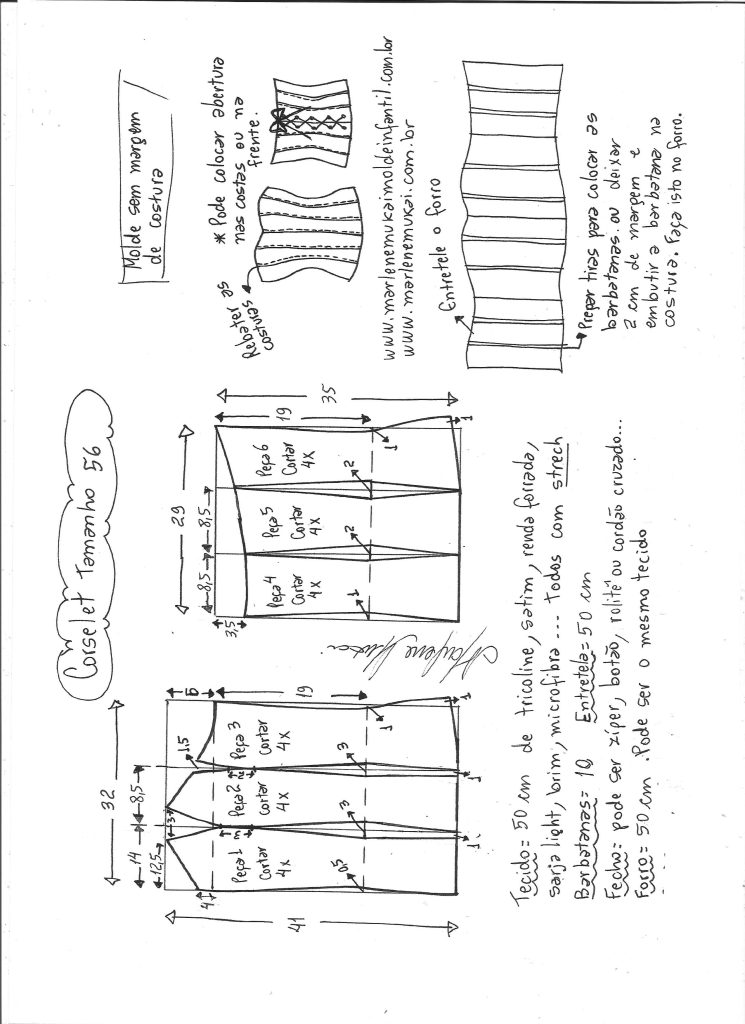 Corselet Tamanho 56
Molde sem margem
de costura
* Pode colocar abertura
nas costas ou na
frente.
Rebater as
costuras
www.marlenemukaimoldeinfantil.com.br
www.marlenemukai.com.br
Entretele o forro
Prepar tiras para colocar as
barbatanas ou deixar
2 cm de margem e
embutir a barbatana na
costura. Faça isto no forro.
32
14
8,5
12,5
3
1,5
4
41
19
Peça 1
Cortar
4x
Peça 2
Cortar
4x
Peça 3
Cortar
4x
3
2
0,5
3
3
1
1
1
1
29
8,5
8,5
3,5
19
35
Peça 4
Cortar
4x
Peça 5
Cortar
4x
Peça 6
Cortar
4x
1
2
2
1
1
Tecido = 50 cm de tricoline, satim, renda forrada,
sarja light, brim, microfibra... Todos com strech
Barbatanas = 10 Entretela = 50 cm
Fecho = pode ser zíper, botão, rolitê ou cordão cruzado...
Forro = 50 cm. Pode ser o mesmo tecido